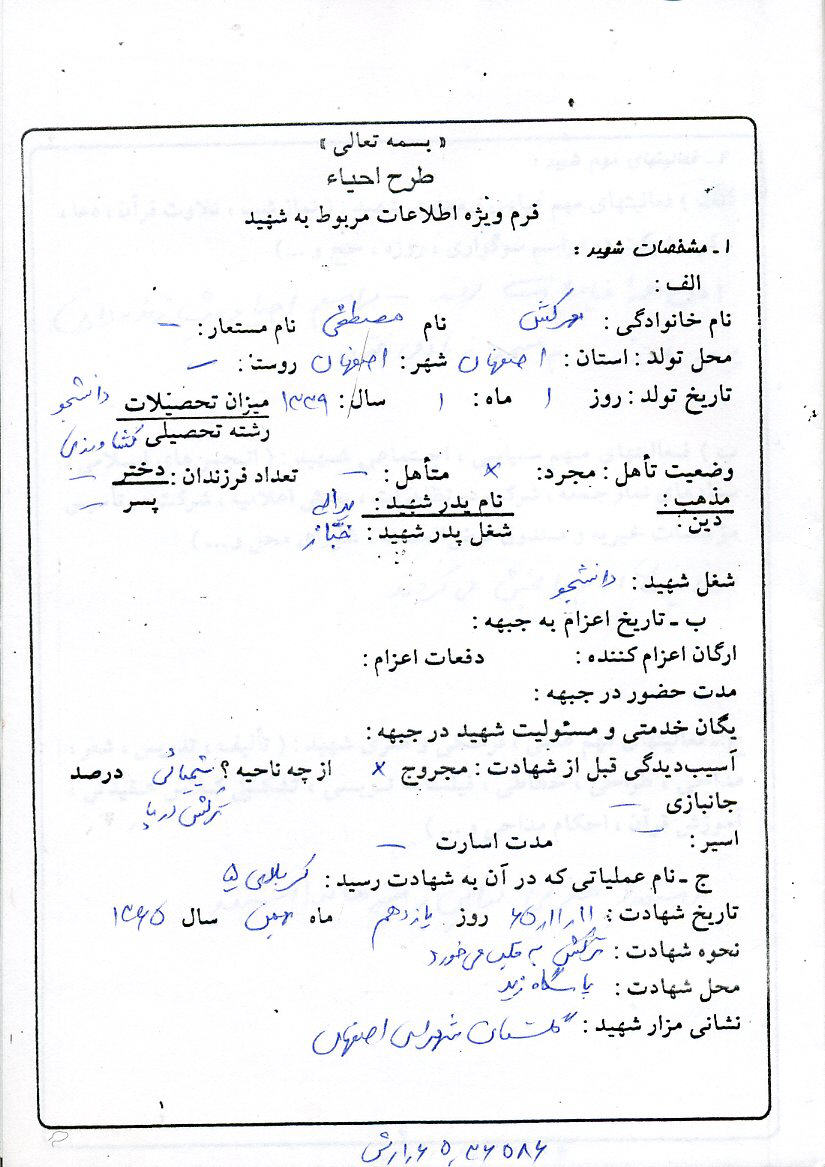 « بسمه تعالی »
طرح احیاء
فرم ویژه اطلاعات مربوط به شهید
۱ ـ مشخصات شهید :
الف :
نام خانوادگی : مهرکش نام مصطفی نام مستعار : —
محل تولد : استان : اصفهان شهر : اصفهان روستا : —
تاریخ تولد : روز ۱ ماه : ۱ سال : ۱۳۳۹ میزان تحصیلات دانشجو
رشته تحصیلی کشاورزی
وضعیت تأهل : مجرد : × متأهل : — تعداد فرزندان : دختر —
مذهب : نام پدر شهید : یداله پسر —
دین : شغل پدر شهید : خباز
شغل شهید : دانشجو
ب ـ تاریخ اعزام به جبهه :
ارگان اعزام کننده : دفعات اعزام :
مدت حضور در جبهه :
یگان خدمتی و مسئولیت شهید در جبهه :
آسیب‌دیدگی قبل از شهادت : مجروح × از چه ناحیه ؟ شیمیائی درصد
جانبازی — ترکش در پا
اسیر : — مدت اسارت —
ج ـ نام عملیاتی که در آن به شهادت رسید : کربلای ۵
تاریخ شهادت : ۶۵/۱۱/۱۱ روز یازدهم ماه بهمن سال ۱۳۶۵
نحوه شهادت : ترکش به قلب می‌خورد
محل شهادت : پاسگاه زید
نشانی مزار شهید : گلستان شهدای اصفهان
۱